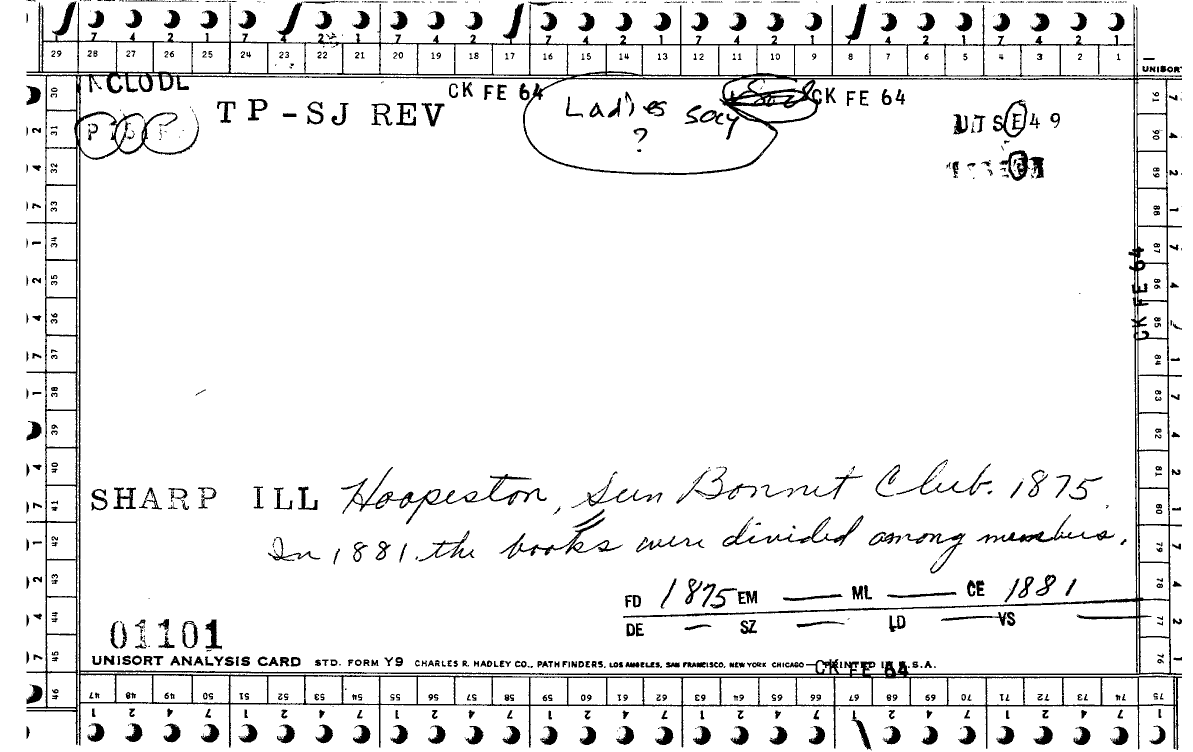 7 4 2 1 7 4 2 1 7 4 2 1 7 4 2 1 7 4 2 1 7 4 2 1 7 4 2 1
29 28 27 26 25 24 23 22 21 20 19 18 17 16 15 14 13 12 11 10 9 8 7 6 5 4 3 2 1
UNISORT
CLODL
CK FE 64
CK FE 64
TP-SJ REV
Ladies say
?
UTSE49
P
CK FE 64
SHARP ILL Hoopeston, Sun Bonnet Club. 1875
In 1881 the books were divided among members.
FD 1875 EM — ML — CE 1881
DE — SZ — LD — VS —
01101
UNISORT ANALYSIS CARD STD. FORM Y9 CHARLES R. HADLEY CO., PATHFINDERS, LOS ANGELES, SAN FRANCISCO, NEW YORK CHICAGO—PRINTED IN U.S.A.
CK FE 64
47 48 49 50 51 52 53 54 55 56 57 58 59 60 61 62 63 64 65 66 67 68 69 70 71 72 73 74 75
1 2 4 7 1 2 4 7 1 2 4 7 1 2 4 7 1 2 4 7 1 2 4 7 1 2 4 7 1